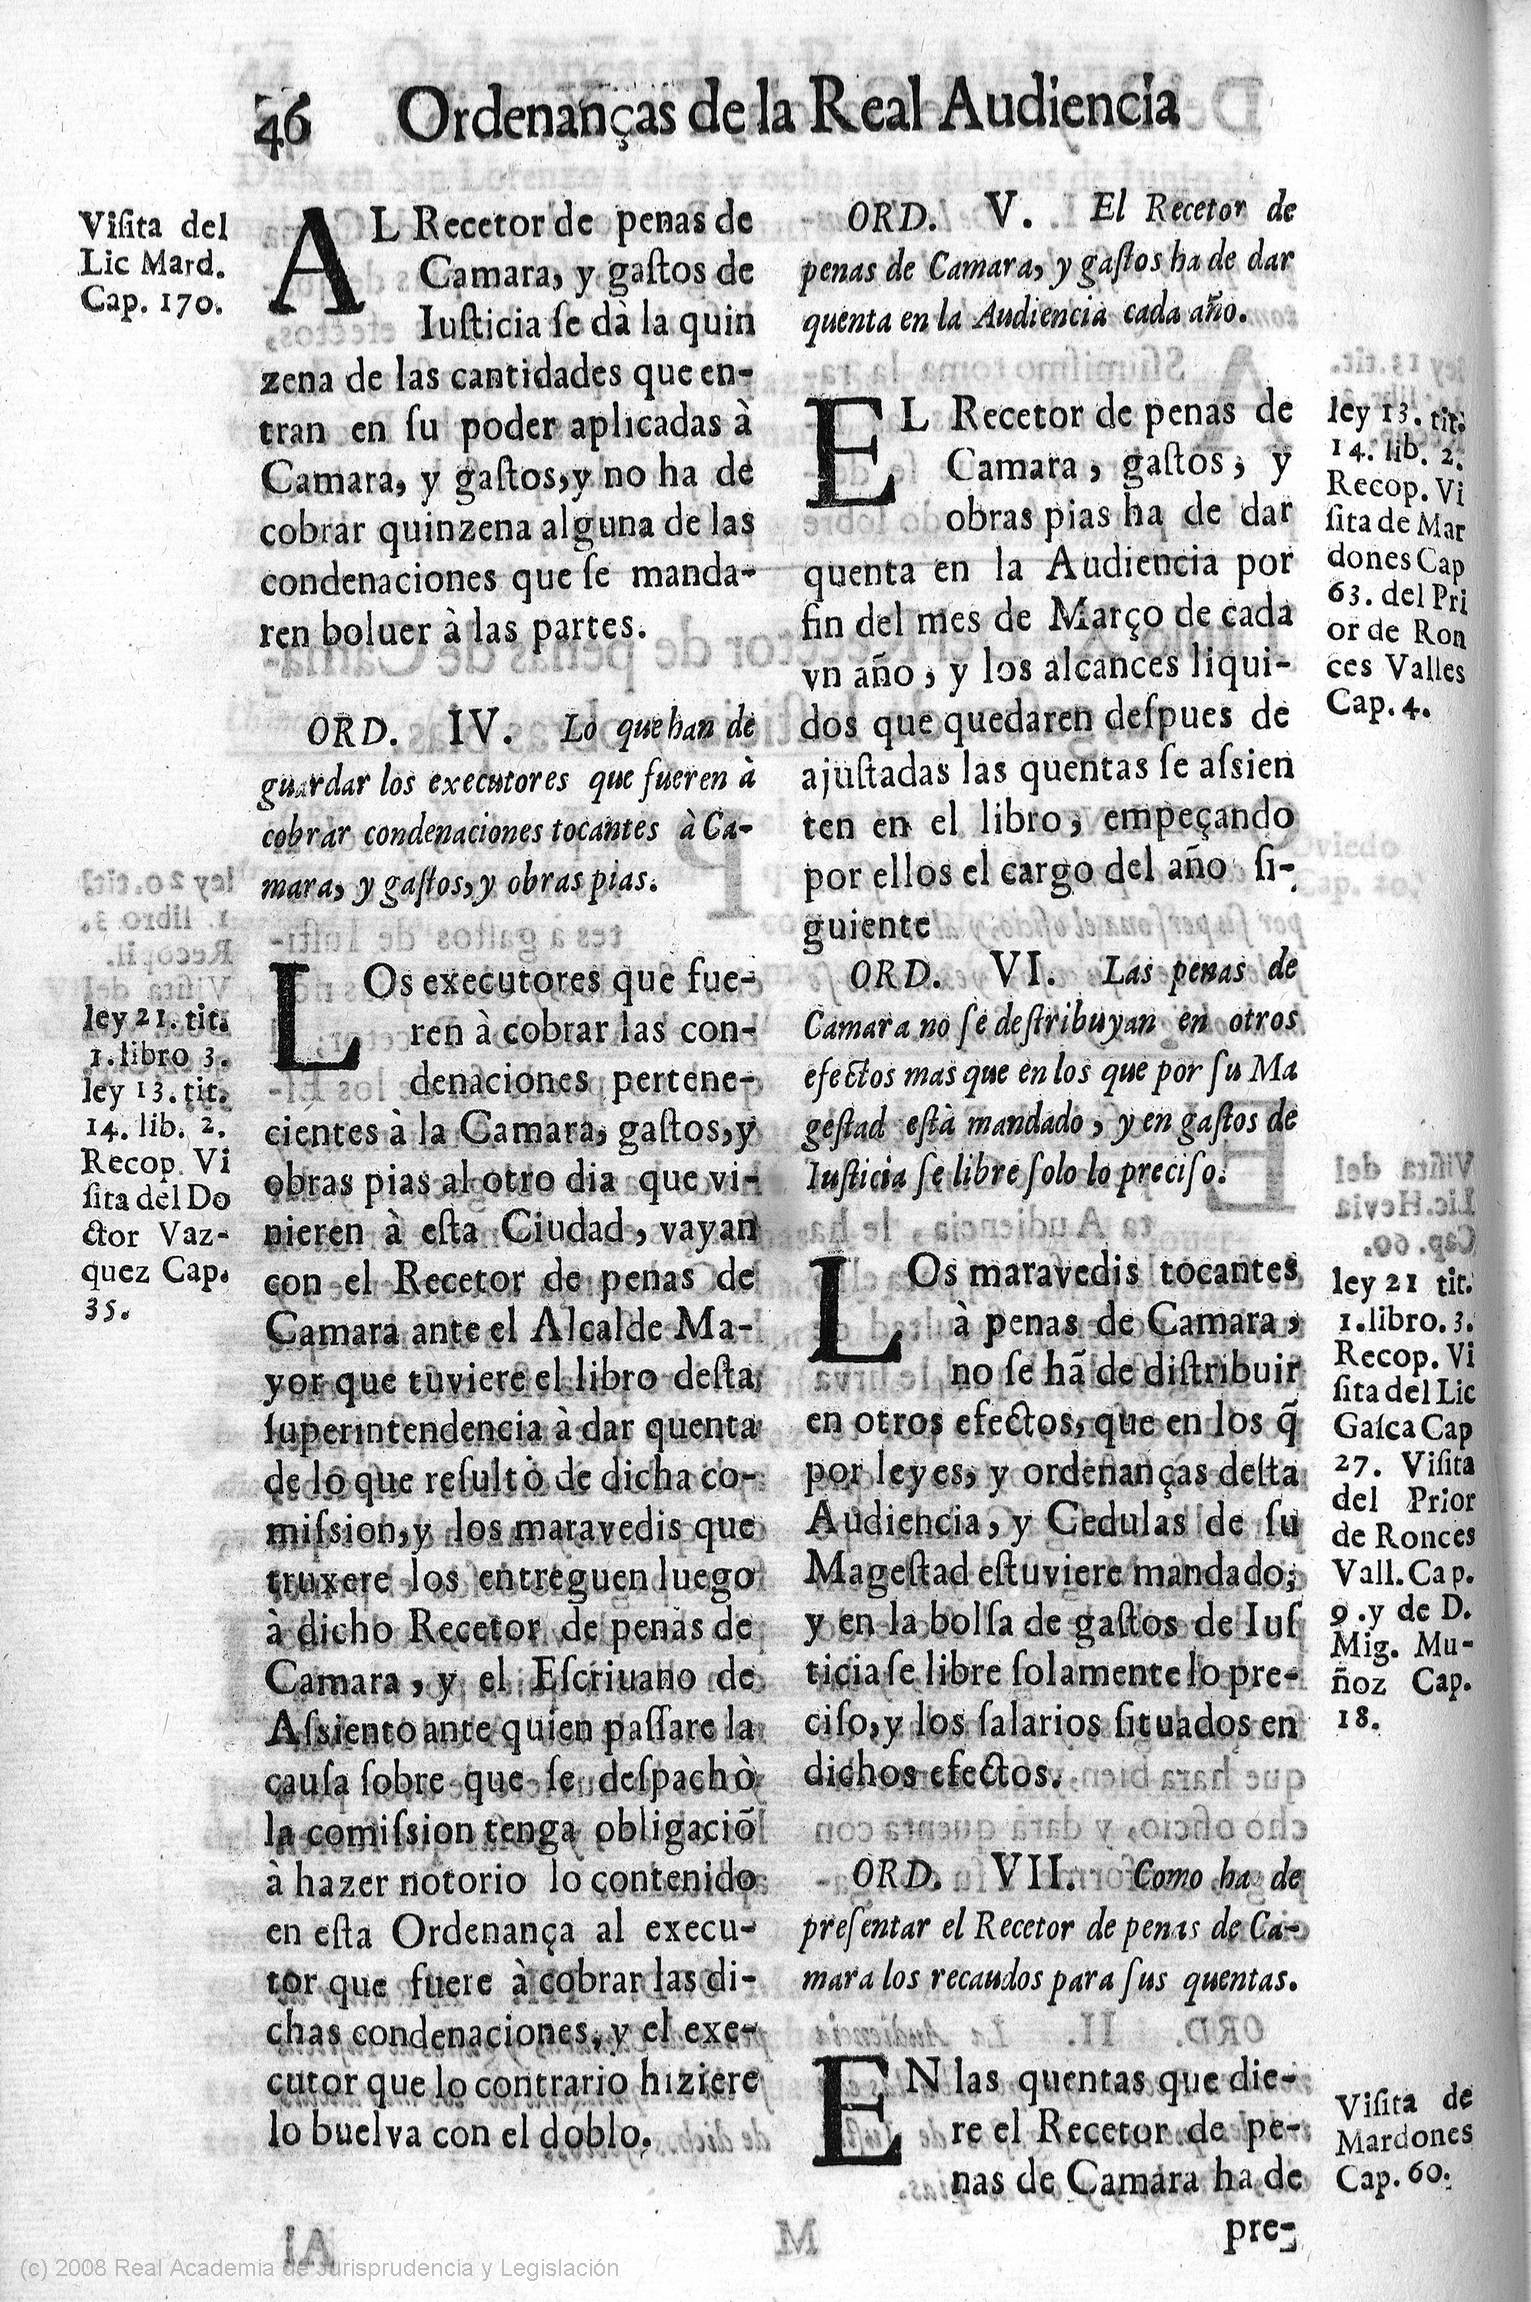 46 Ordenanças de la Real Audiencia
Viſita del
Lic Mard.
Cap. 170.
AL Recetor de penas de
Camara, y gaſtos de
Iuſticia ſe dà la quin
zena de las cantidades que en-
tran en ſu poder aplicadas à
Camara, y gaſtos, y no ha de
cobrar quinzena alguna de las
condenaciones que ſe manda-
ren boluer à las partes.
ORD. IV. Lo que han de
guardar los executores que fueren à
cobrar condenaciones tocantes à Ca-
mara, y gaſtos, y obras pias.
ley 21. tit.
1. libro 3.
ley 13. tit.
14. lib. 2.
Recop. Vi
ſita del Do
ctor Vaz-
quez Cap.
35.
LOs executores que fue-
ren à cobrar las con-
denaciones pertene-
cientes à la Camara, gaſtos, y
obras pias al otro dia que vi-
nieren à eſta Ciudad, vayan
con el Recetor de penas de
Camara ante el Alcalde Ma-
yor que tuviere el libro deſta
ſuperintendencia à dar quenta
de lo que reſultò de dicha co-
miſsion, y los maravedis que
truxere los entreguen luego
à dicho Recetor de penas de
Camara, y el Eſcriuano de
Aſsiento ante quien paſſare la
cauſa ſobre que ſe deſpachò
la comiſsion tenga obligaciõ
à hazer notorio lo contenido
en eſta Ordenança al execu-
tor que fuere à cobrar las di-
chas condenaciones, y el exe-
cutor que lo contrario hiziere
lo buelva con el doblo.
ORD. V. El Recetor de
penas de Camara, y gaſtos ha de dar
quenta en la Audiencia cada año.
EL Recetor de penas de
Camara, gaſtos, y
obras pias ha de dar
quenta en la Audiencia por
fin del mes de Março de cada
vn año, y los alcances liqui-
dos que quedaren deſpues de
ajuſtadas las quentas ſe aſsien
ten en el libro, empeçando
por ellos el cargo del año ſi-
guiente
ley 13. tit.
14. lib. 2.
Recop. Vi
ſita de Mar
dones Cap
63. del Pri
or de Ron
ces Valles
Cap. 4.
ORD. VI. Las penas de
Camara no ſe deſtribuyan en otros
efectos mas que en los que por ſu Ma
geſtad eſtà mandado, y en gaſtos de
Iuſticia ſe libre ſolo lo preciſo.
LOs maravedis tocantes
à penas de Camara,
no ſe hã de diſtribuir
en otros efectos, que en los q̃
por leyes, y ordenanças deſta
Audiencia, y Cedulas de ſu
Mageſtad eſtuviere mandado;
y en la bolſa de gaſtos de Iuſ
ticia ſe libre ſolamente lo pre-
ciſo, y los ſalarios ſituados en
dichos efectos.
ley 21 tit.
1. libro. 3.
Recop. Vi
ſita del Lic
Gaſca Cap
27. Viſita
del Prior
de Ronces
Vall. Cap.
9. y de D.
Mig. Mu-
ñoz Cap.
18.
ORD. VII. Como ha de
preſentar el Recetor de penas de Ca-
mara los recaudos para ſus quentas.
EN las quentas que die-
re el Recetor de pe-
nas de Camara ha de
pre-
Viſita de
Mardones
Cap. 60.
(c) 2008 Real Academia de Jurisprudencia y Legislación